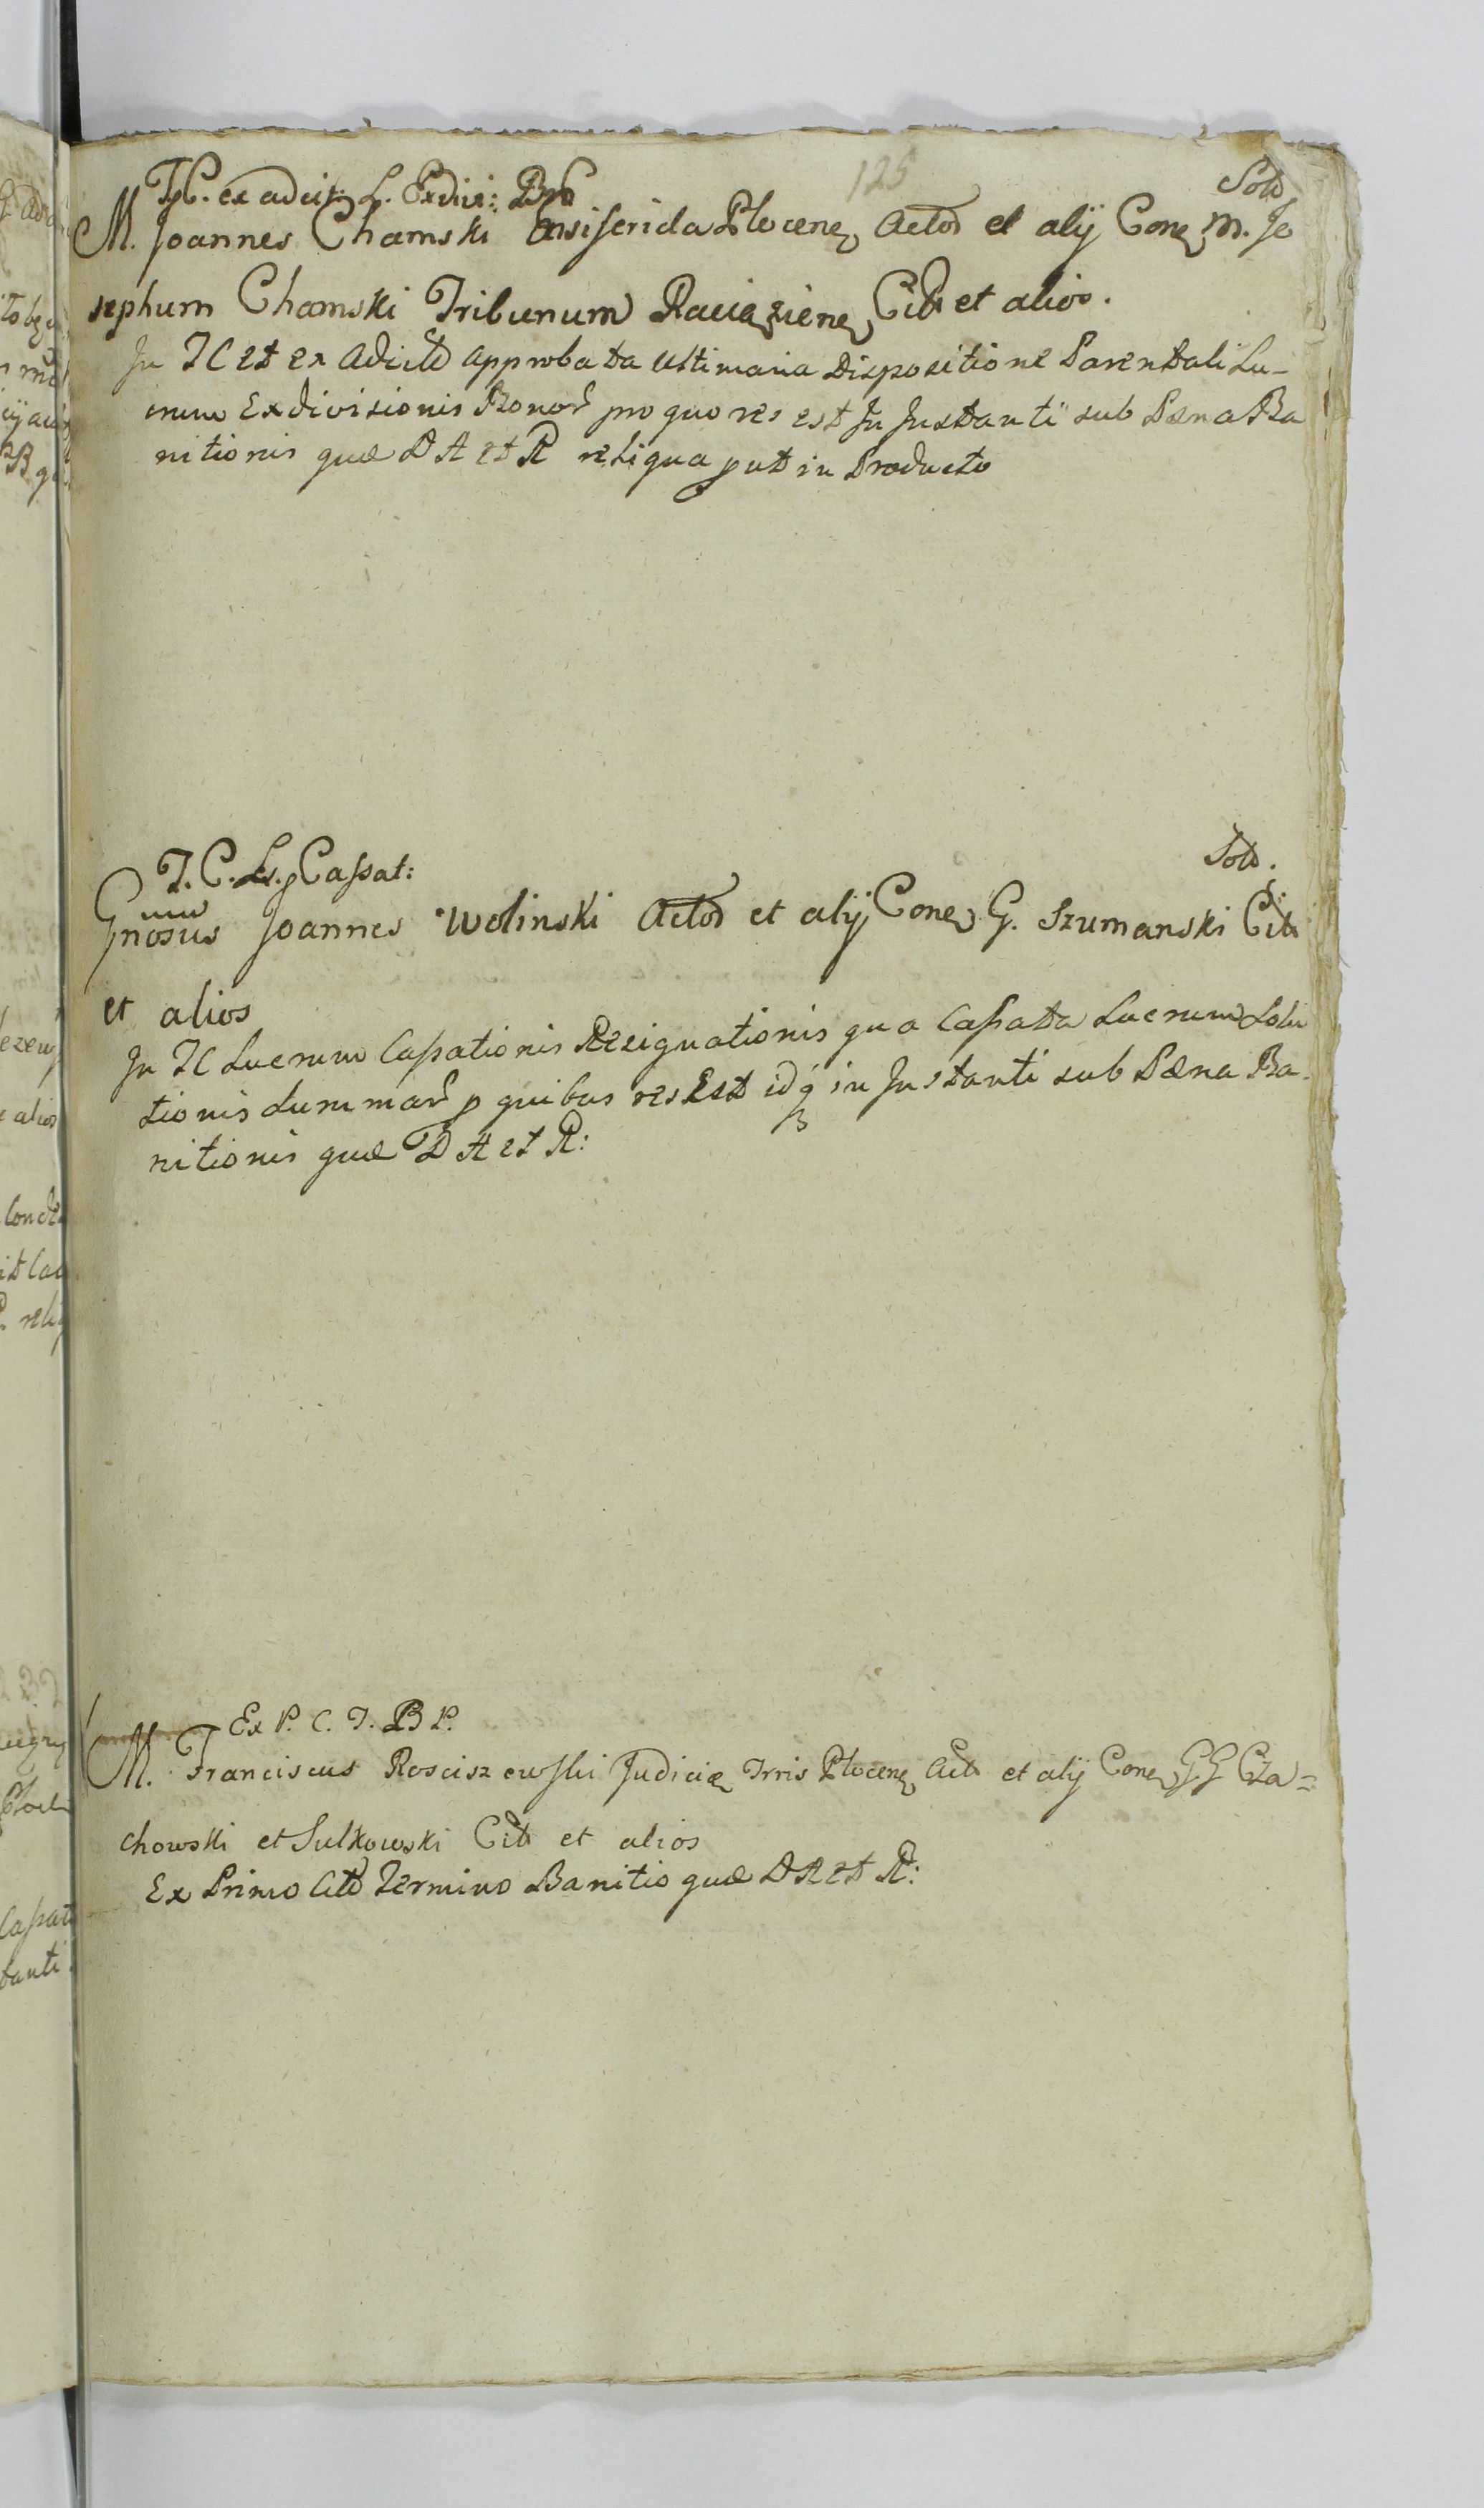 125
TC. ex adcit: L. Exdivi: BnP Sotd
M. Joannes Chamski Ensiferida Plocen Actor et alij Con M. Jo
sephum Chamski Tribunum Raciązien Citd et alios.
In TC et ex Adictd approbata ultimaria Dispositione Parentali Lu-
crum Exdivisionis Bonor pro quo res est In Instanti sub Pæna Ba
nitionis quæ D A et R reliqua put in Producto
T. C. Ls. Cassat: Sotd.
Gnosus Joannes Wolinski Actor et alij Con G. Szumanski Citd
et alios
In TC Lucrum Cassationis Resignationis qua Cassata Lucrum Solu
tionis Summar p quibus res Est idq in Instanti sub Pæna Ba-
nitionis quæ D A et R:
Ex P. C. T. B P.
M. Franciscus Rosciszewski Judicia Trris Plocen Actd et alij Con G.G Cza=
chowski et Sulkowski Citd et alios
Ex Primo Cttd Termino Banitio quæ D A et R: